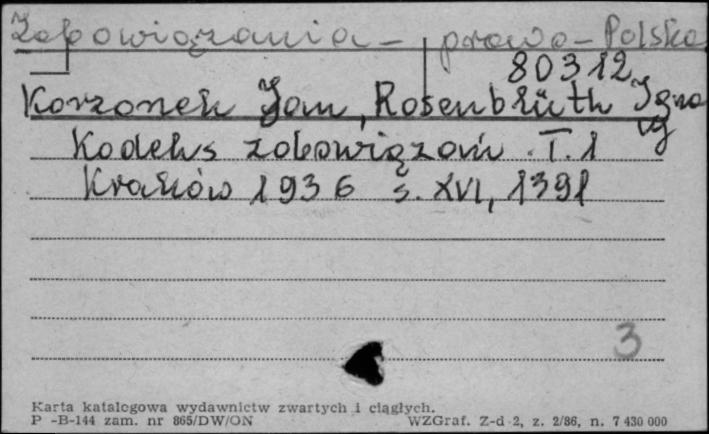 Zobowiązania - prawo - Polska
80312
Korzonek Jan, Rosenblüth Ignacy
Kodeks zobowiązań. T. 1
Kraków 1936 s. XVI, 1391
3
Karta katalogowa wydawnictw zwartych i ciągłych.
P -B-144 zam. nr 865/DW/ON WZGraf. Z-d 2, z. 2/86, n. 7 430 000